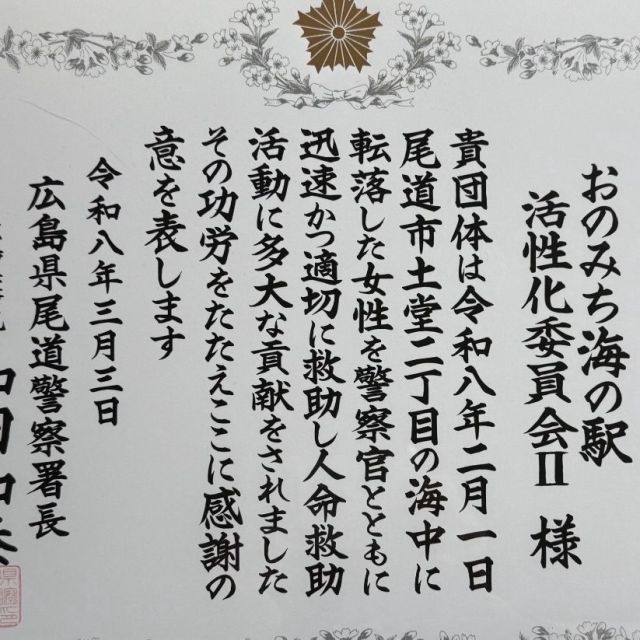 おのみち海の駅
活性化委員会Ⅱ 様
貴団体は令和八年二月一日
尾道市土堂二丁目の海中に
転落した女性を警察官とともに
迅速かつ適切に救助し人命救助
活動に多大な貢献をされました
その功労をたたえここに感謝の
意を表します
令和八年三月三日
広島県尾道警察署長